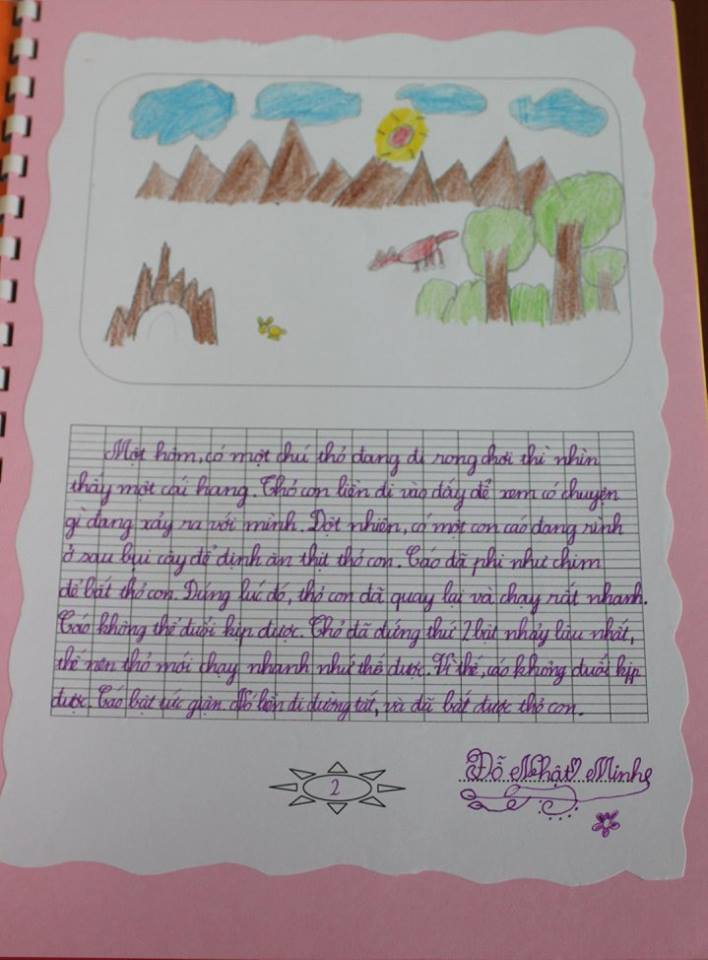 Một hôm, có một chú thỏ đang đi rong chơi thì nhìn
thấy một cái hang. Thỏ con liền đi vào đấy để xem có chuyện
gì đang xảy ra với mình. Đột nhiên, có một con cáo đang rình
ở sau bụi cây để định ăn thịt thỏ con. Cáo đã phi như chim
để bắt thỏ con. Đúng lúc đó, thỏ con đã quay lại và chạy rất nhanh.
Cáo không thể đuổi kịp được. Thỏ đã đứng thứ 2 bật nhảy lâu nhất,
thế nên thỏ mới chạy nhanh như thế được. Vì thế, cáo không đuổi kịp
được. Cáo bật tức giận. Nó liền đi đường tắt, và đã bắt được thỏ con.
2
Đỗ Nhật Minh